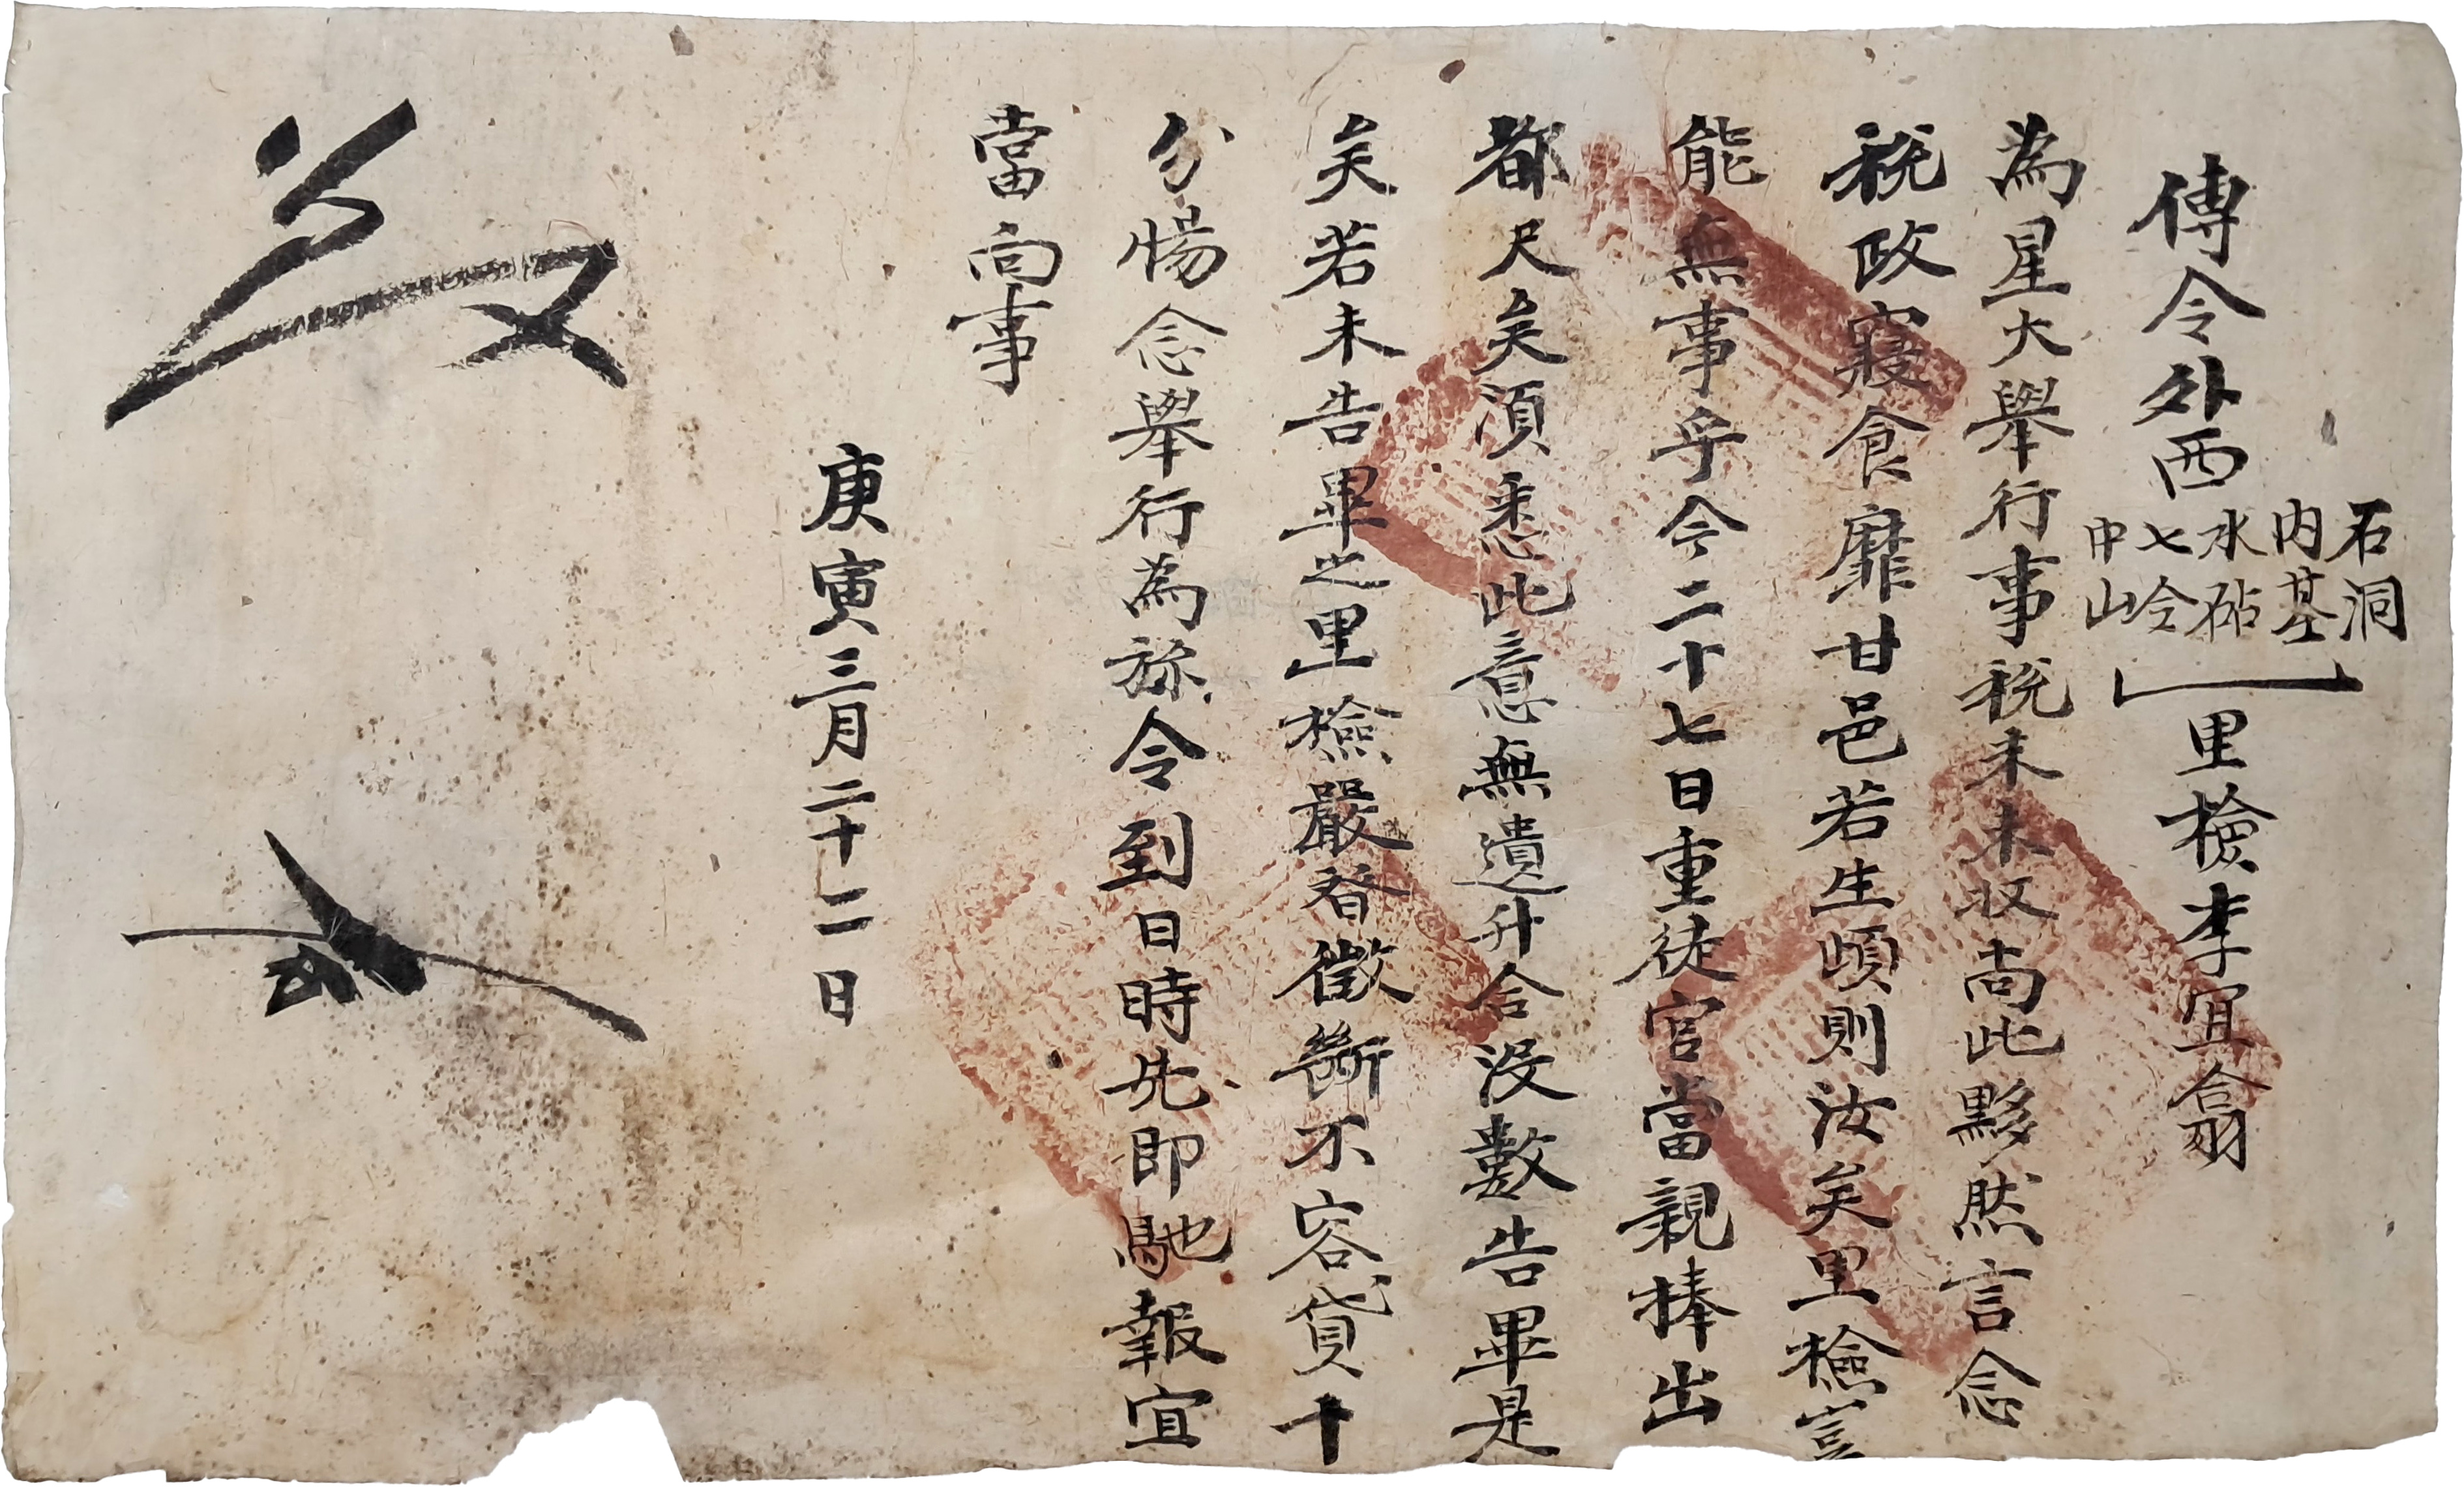 傳令外西 石洞 內基 水砧 七令 中山 里檢李宜翕
為星火舉行事稅未未收尚此夥然言念
稅政寢食靡甘邑若生頉則汝矣里檢豈
能無事乎今二十七日重徒官當親捧出
都尺矣須悉此意無遺升合沒數告畢是
矣若未告畢之里檢嚴督徵斷不容貸十
分惕念舉行為旀令到日時先即馳報宜
當向事
庚寅三月二十二日